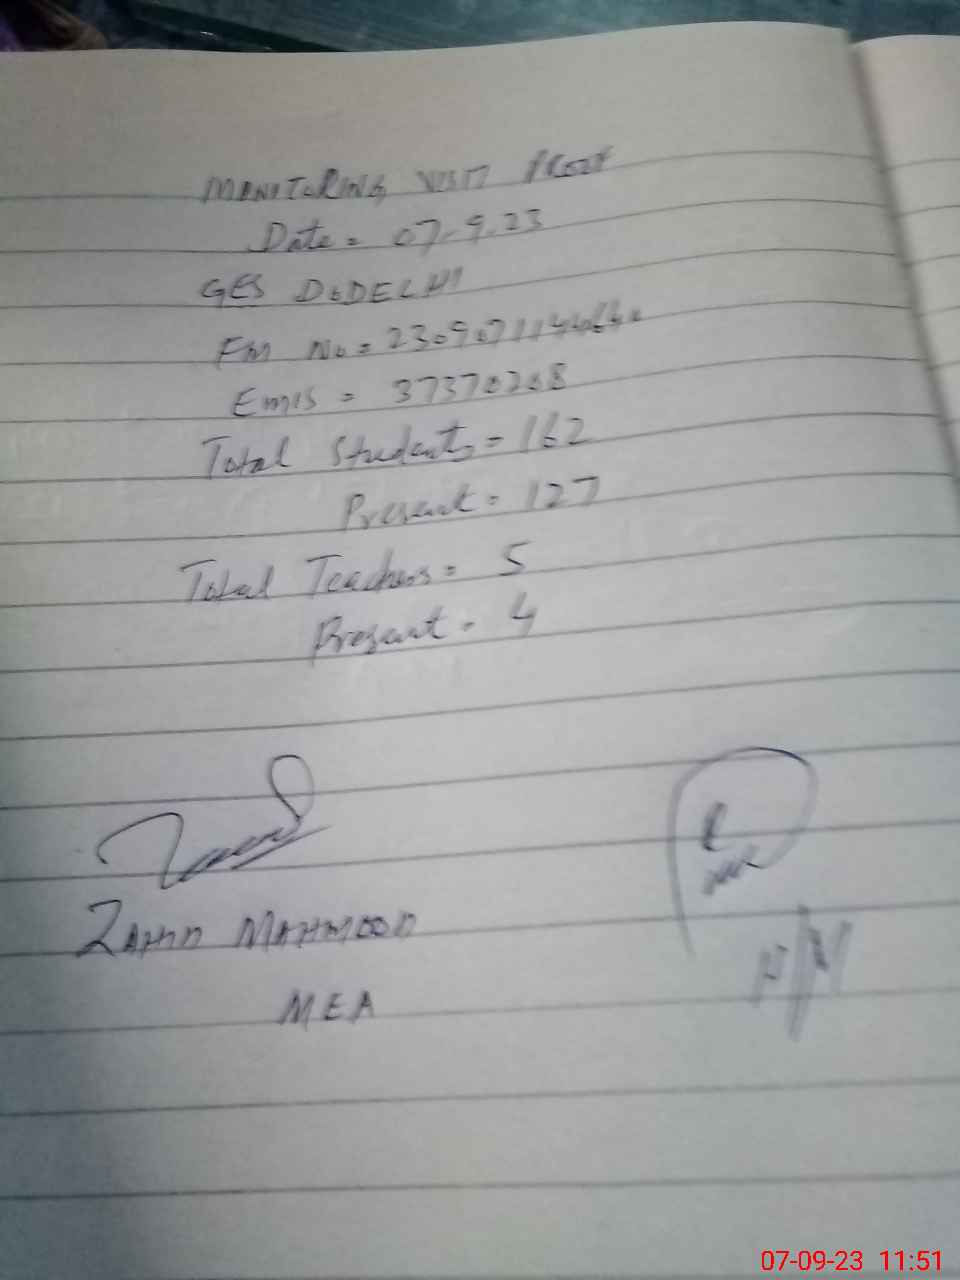 MONITORING VISIT PROOF
Date = 07-9.23
GES DODELHI
Em No =
Emis = 37370208
Total Students = 162
Present = 127
Total Teachers = 5
Present = 4
ZAHID MAHMOOD
MEA
H/M
07-09-23 11:51